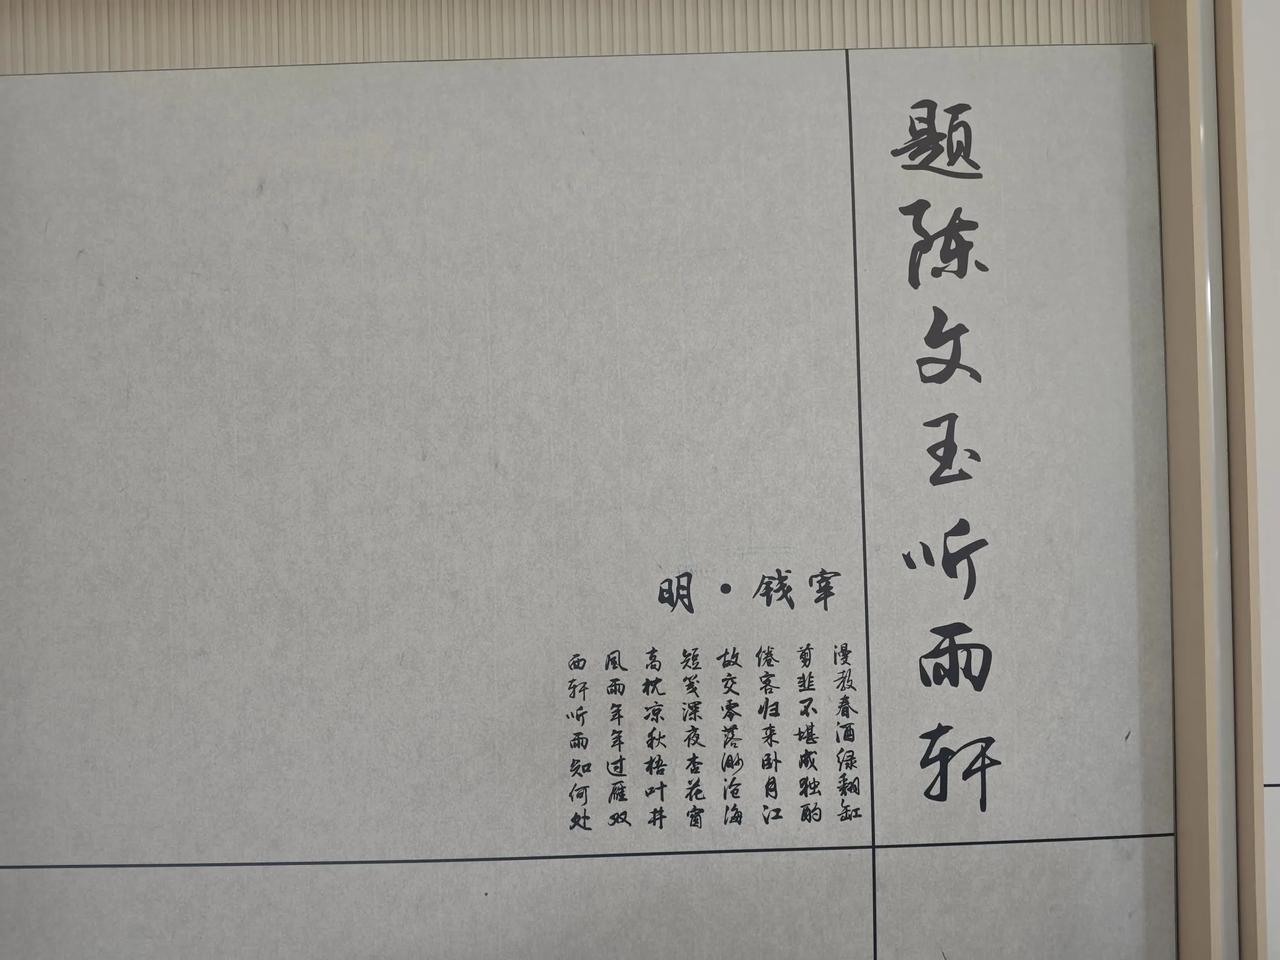 题陈文玉听雨轩
明·钱宰
西轩听雨知何处
风雨年年过雁双
高枕凉秋梧叶井
短笺深夜杏花窗
故交零落渺沧海
倦客归来卧月江
剪韭不堪成独酌
漫教春酒绿翻缸